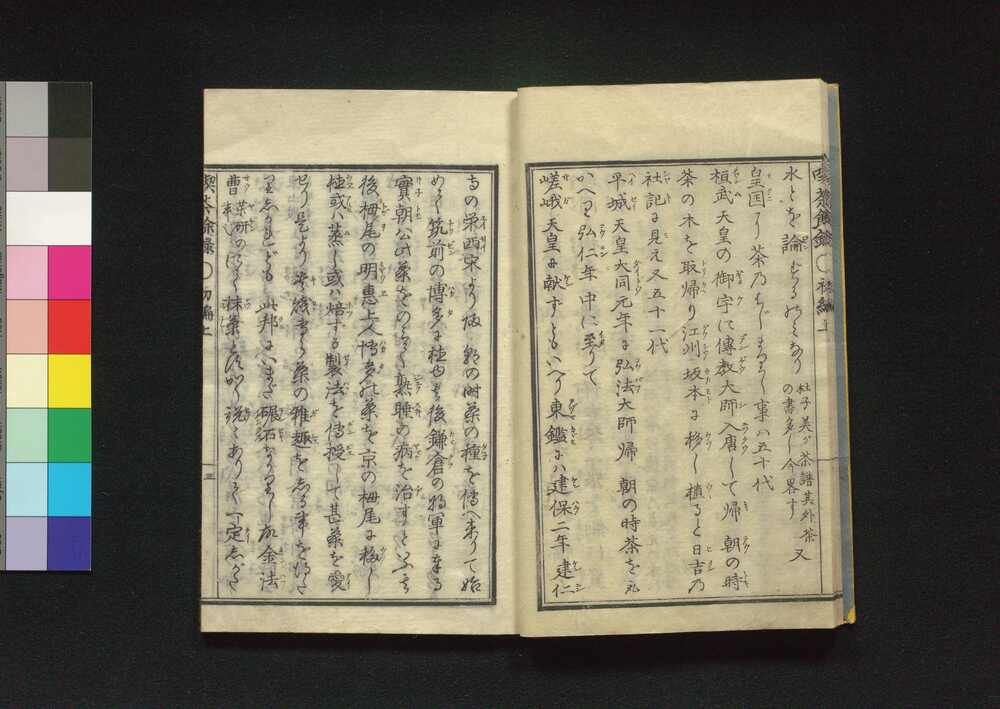 水とを論ずるのみなり 杜子美が茶譜其外茶の書多し今畧す 又
皇国にて茶乃はじまりし事ハ五十代
桓武天皇の御宇に傳教大師入唐して帰朝の時
茶の木を取帰り江州坂本に移し植ると日吉乃
社記に見え又五十一代
平城天皇大同元年に弘法大師帰朝の時茶を
かへり弘仁年中に至りて
嵯峨天皇に献ずともいへり東鑑にハ建保二年建仁
寺の栄西宋より帰朝の時茶の種を傳へ来りて始
めて筑前の博多に植
後鎌倉の将軍
實朝公此茶をのみて熟睡の病を治すといふ
後栂尾の明惠上人博多の茶を京の栂尾に移し
植或ハ蒸し或ハ焙ずる製法を傳授して甚茶を愛
せり是より茶の雅趣をしる
しかれども此邦にいまだ碾石
曹 茶研 抹茶 説もありて一定しがた
喫茶餘録 初編上
三